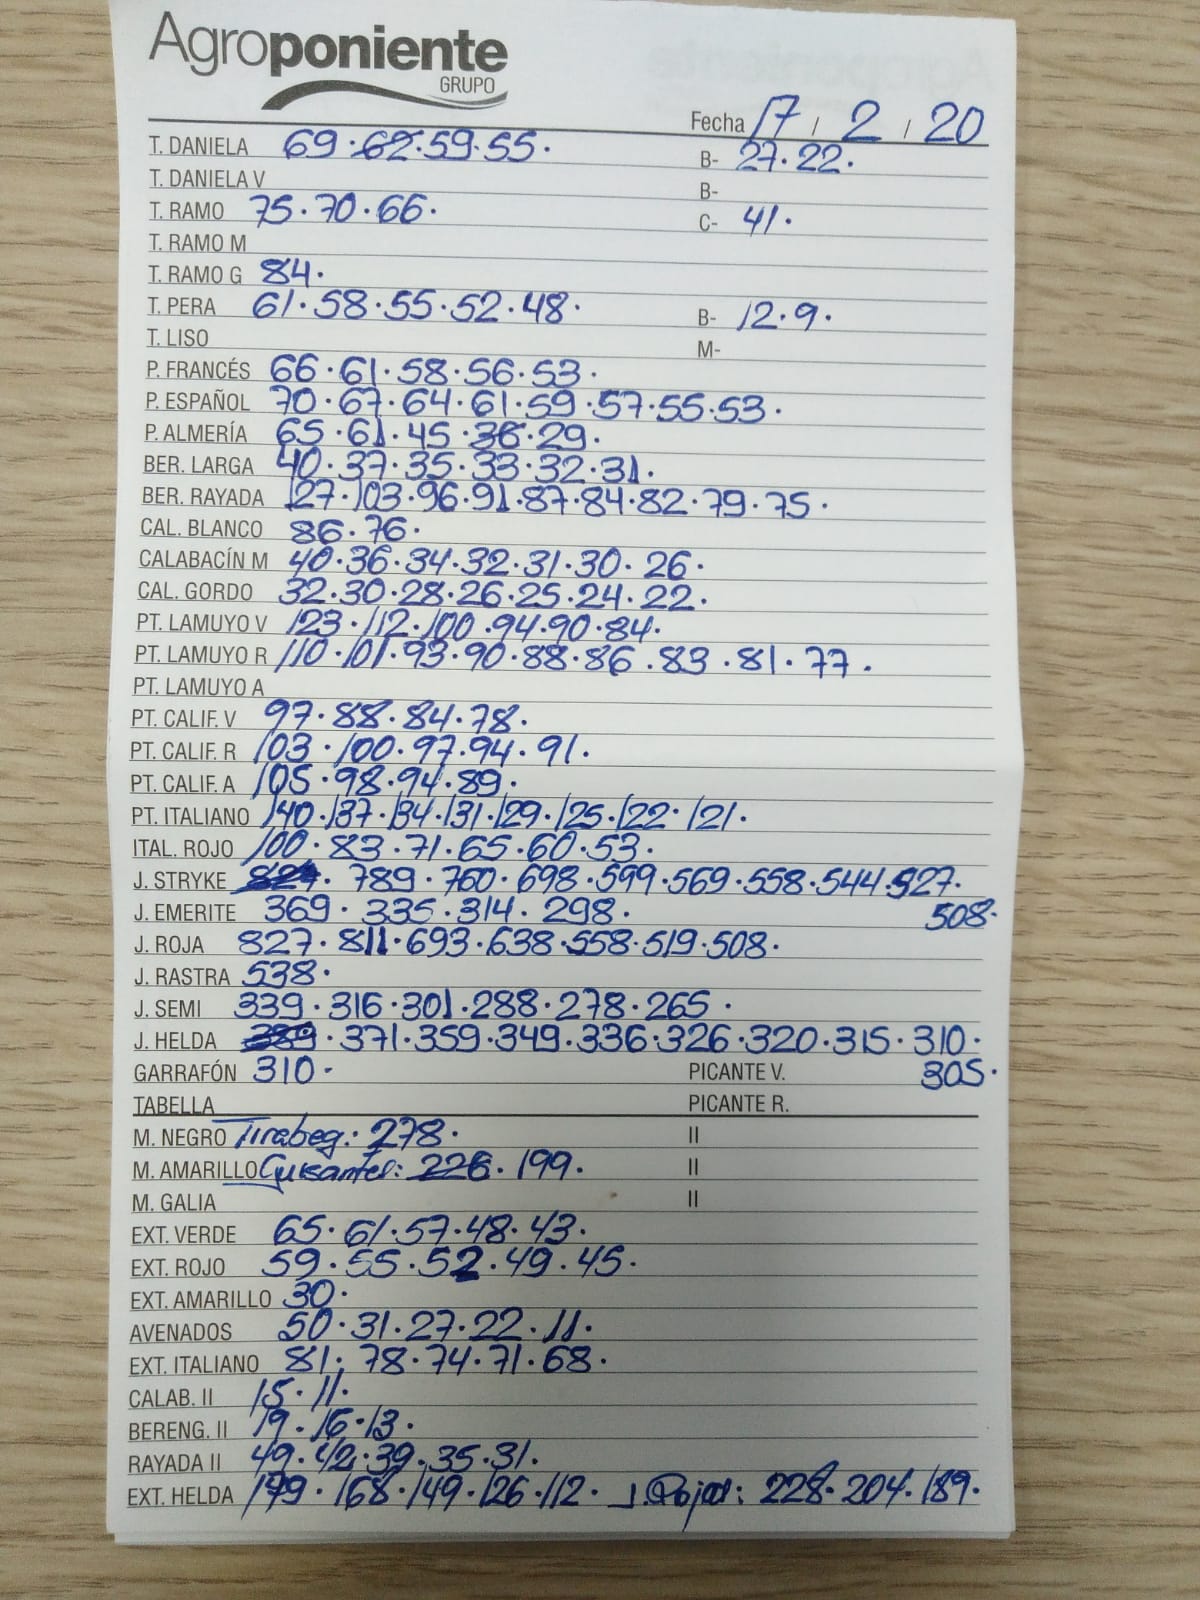 Agroponiente
GRUPO
Fecha 17 / 2 / 20
T. DANIELA 69·62·59·55· B- 27·22·
T. DANIELA V B-
T. RAMO 75·70·66· C- 41·
T. RAMO M
T. RAMO G 84·
T. PERA 61·58·55·52·48· B- 12·9·
T. LISO M-
P. FRANCÉS 66·61·58·56·53·
P. ESPAÑOL 70·67·64·61·59·57·55·53·
P. ALMERÍA 65·61·45·36·29·
BER. LARGA 40·37·35·33·32·31·
BER. RAYADA 127·103·96·91·87·84·82·79·75·
CAL. BLANCO 86·76·
CALABACÍN M 40·36·34·32·31·30·26·
CAL. GORDO 32·30·28·26·25·24·22·
PT. LAMUYO V 123·112·100·94·90·84·
PT. LAMUYO R 110·101·93·90·88·86·83·81·77·
PT. LAMUYO A
PT. CALIF. V 97·88·84·78·
PT. CALIF. R 103·100·97·94·91·
PT. CALIF. A 105·98·94·89·
PT. ITALIANO 140·137·134·131·129·125·122·121·
ITAL. ROJO 100·83·71·65·60·53·
J. STRYKE 827·789·760·698·599·569·558·544·527·
J. EMERITE 369·335·314·298· 508·
J. ROJA 827·811·693·638·558·519·508·
J. RASTRA 538·
J. SEMI 339·316·301·288·278·265·
J. HELDA 389·371·359·349·336·326·320·315·310·
GARRAFÓN 310· PICANTE V. 305·
TABELLA PICANTE R.
M. NEGRO Tirabeq: 278· II
M. AMARILLO Guisantes: 226·199· II
M. GALIA II
EXT. VERDE 65·61·57·48·43·
EXT. ROJO 59·55·52·49·45·
EXT. AMARILLO 30·
AVENADOS 50·31·27·22·11·
EXT. ITALIANO 81·78·74·71·68·
CALAB. II 15·11·
BERENG. II 19·16·13·
RAYADA II 49·42·39·35·31·
EXT. HELDA 179·168·149·126·112· J. Rojas: 228·204·189·